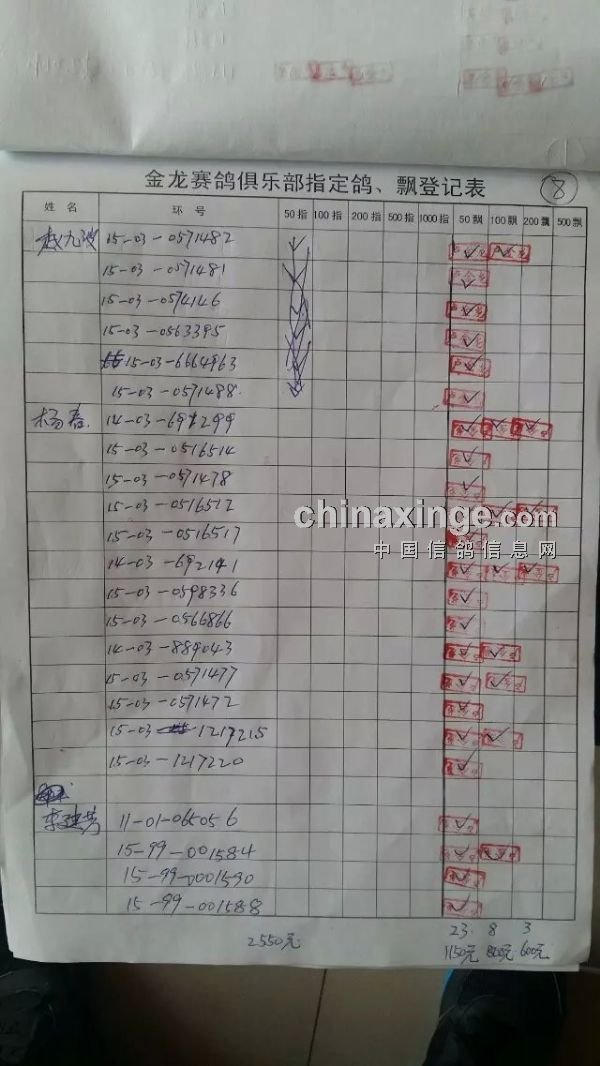 金龙赛鸽俱乐部指定鸽、飘登记表 8
姓名 环号 50指 100指 200指 500指 1000指 50飘 100飘 200飘 500飘
赵九波 15-03-0571482
15-03-0571481
15-03-0574146
15-03-0563395
15-03-6664963
15-03-0571488
杨春 14-03-691299
15-03-0516514
15-03-0571478
15-03-0516512
chinaxinge.com
15-03-0516517
中国信鸽信息网
14-03-692141
15-03-0598336
15-03-0566866
14-03-889043
15-03-0571477
15-03-0571472
15-03-1217215
15-03-1217220
李建芳 11-01-065056
15-99-001584
15-99-0001590
15-99-001588
23 8 3
2550元 1150元 800元 600元